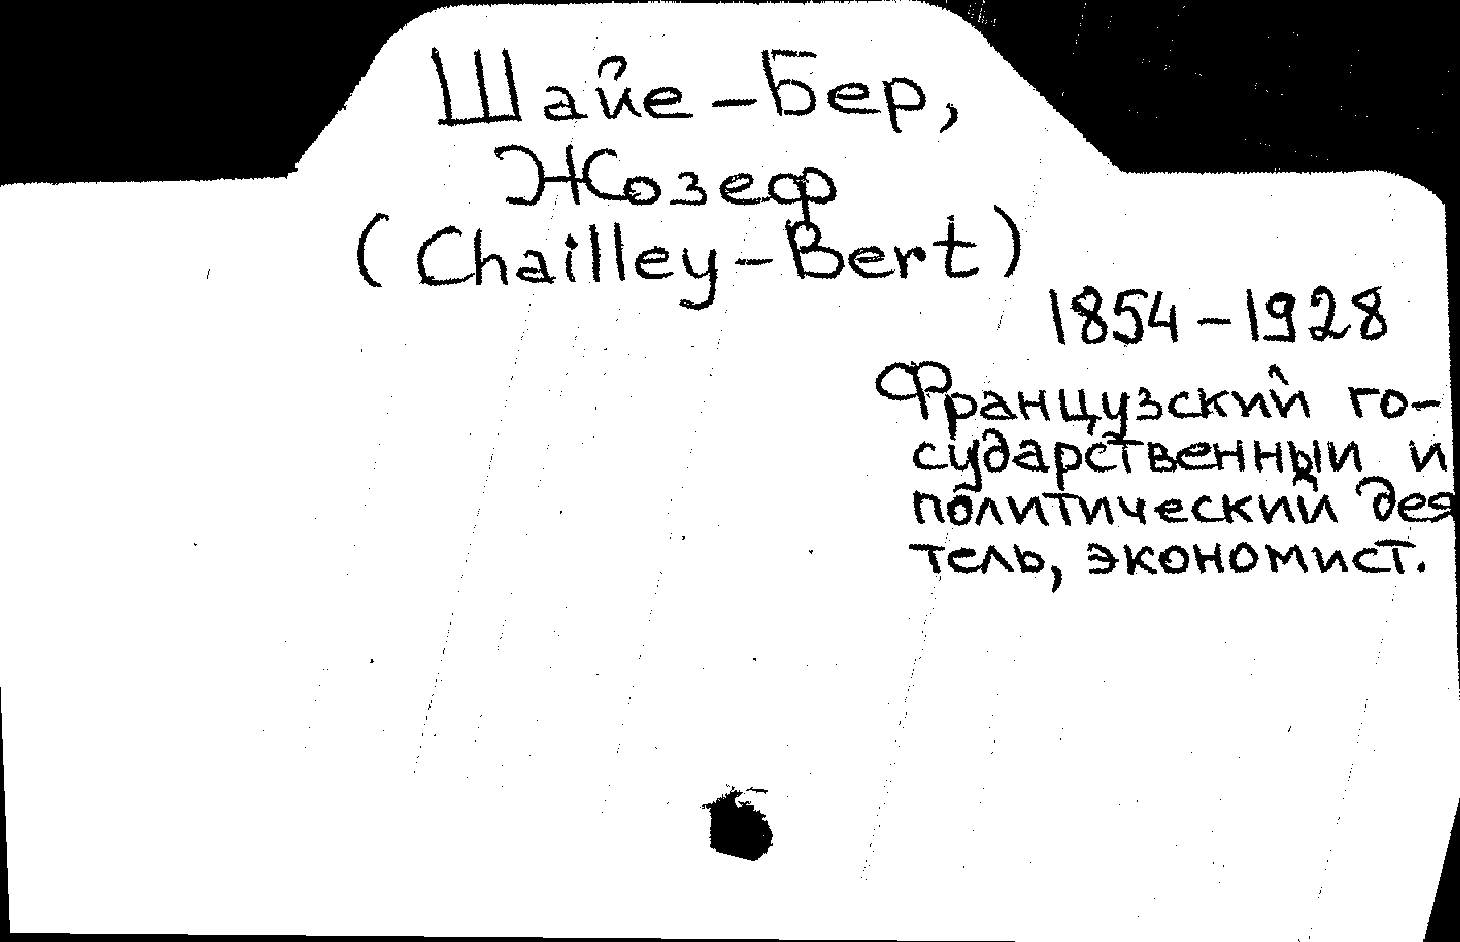 Шайе-Бер,
Жозеф
(Chailley-Bert)
1854-1928
Французский го-
сударственный и
политический дея
тель, экономист.